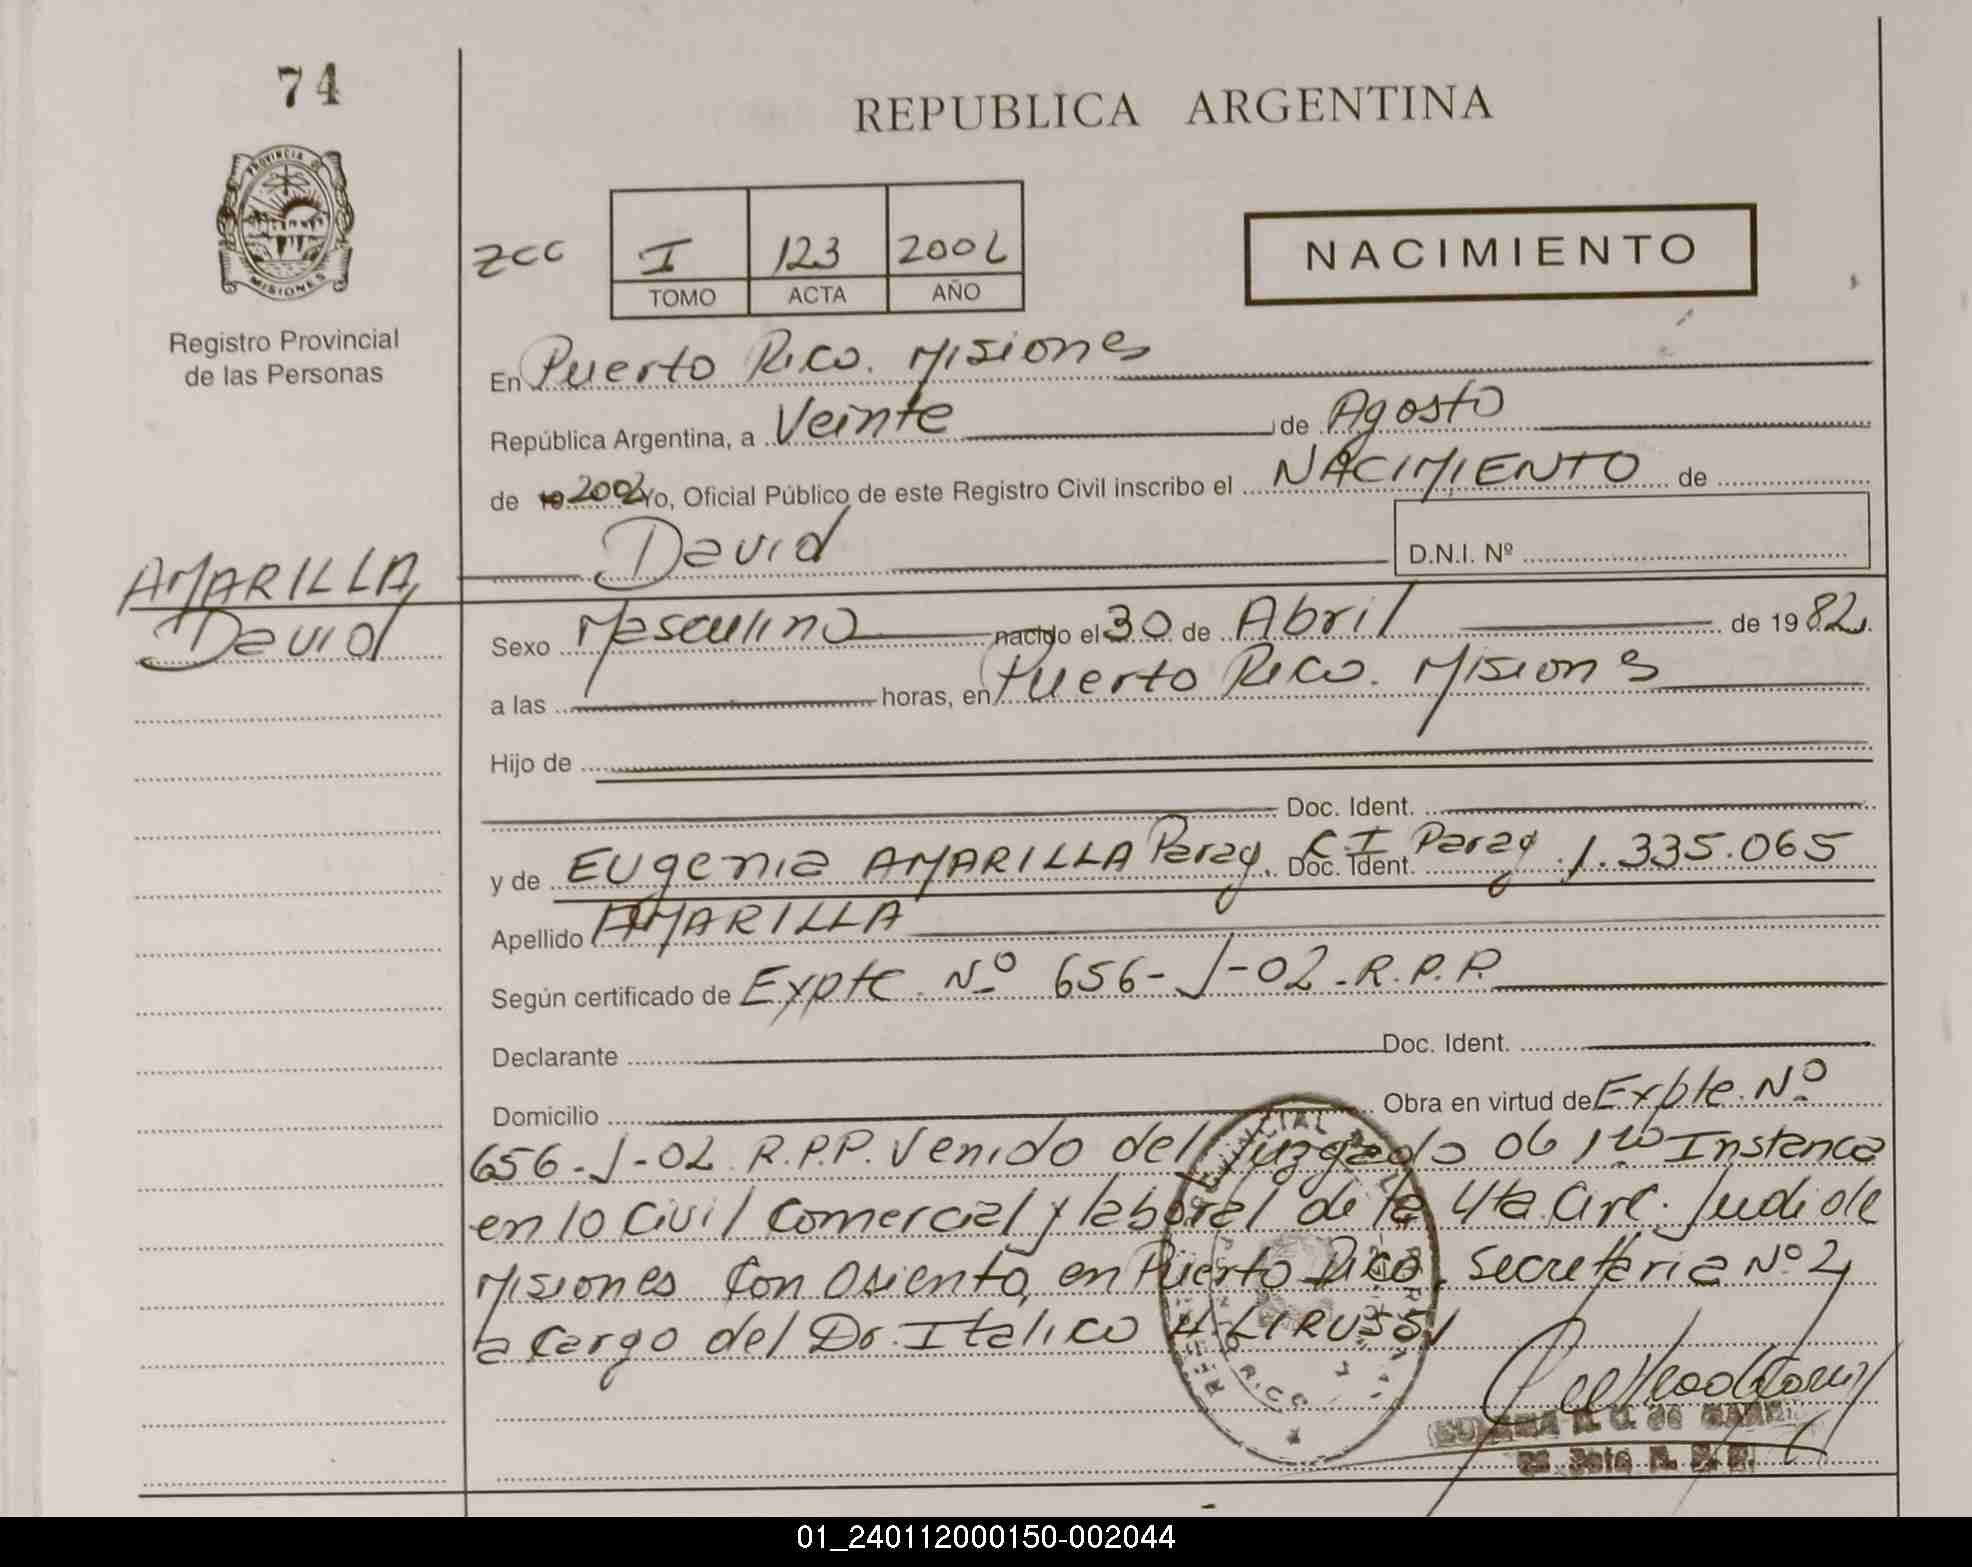 74
REPUBLICA ARGENTINA
PROVINCIA D
MISIONES
Registro Provincial
de las Personas
zcc I 123 2002
TOMO ACTA AÑO
NACIMIENTO
En Puerto Rico. Misiones
República Argentina, a Veinte de Agosto
de 19 2002 Yo, Oficial Público de este Registro Civil inscribo el NACIMIENTO de
David D.N.I. Nº
AMARILLA,
David
Sexo Masculino nacido el 30 de Abril de 1982
a las horas, en Puerto Rico. Misiones
Hijo de
Doc. Ident.
y de Eugenia AMARILLA Parag. Doc. Ident. C I Parag. 1.335.065
Apellido AMARILLA
Según certificado de Expte. Nº 656-J-02-R.P.P.
Declarante Doc. Ident.
Domicilio Obra en virtud de Expte. Nº
656-J-02 R.P.P. Venido del Juzgado de 1ra Instancia
en lo Civil Comercial y laboral de la 4ta. Circ. Judi de
Misiones con asiento en Puerto Rico. Secretaria Nº 2,
a cargo del Dr. Italico H. LIRUSSI
01_240112000150-002044